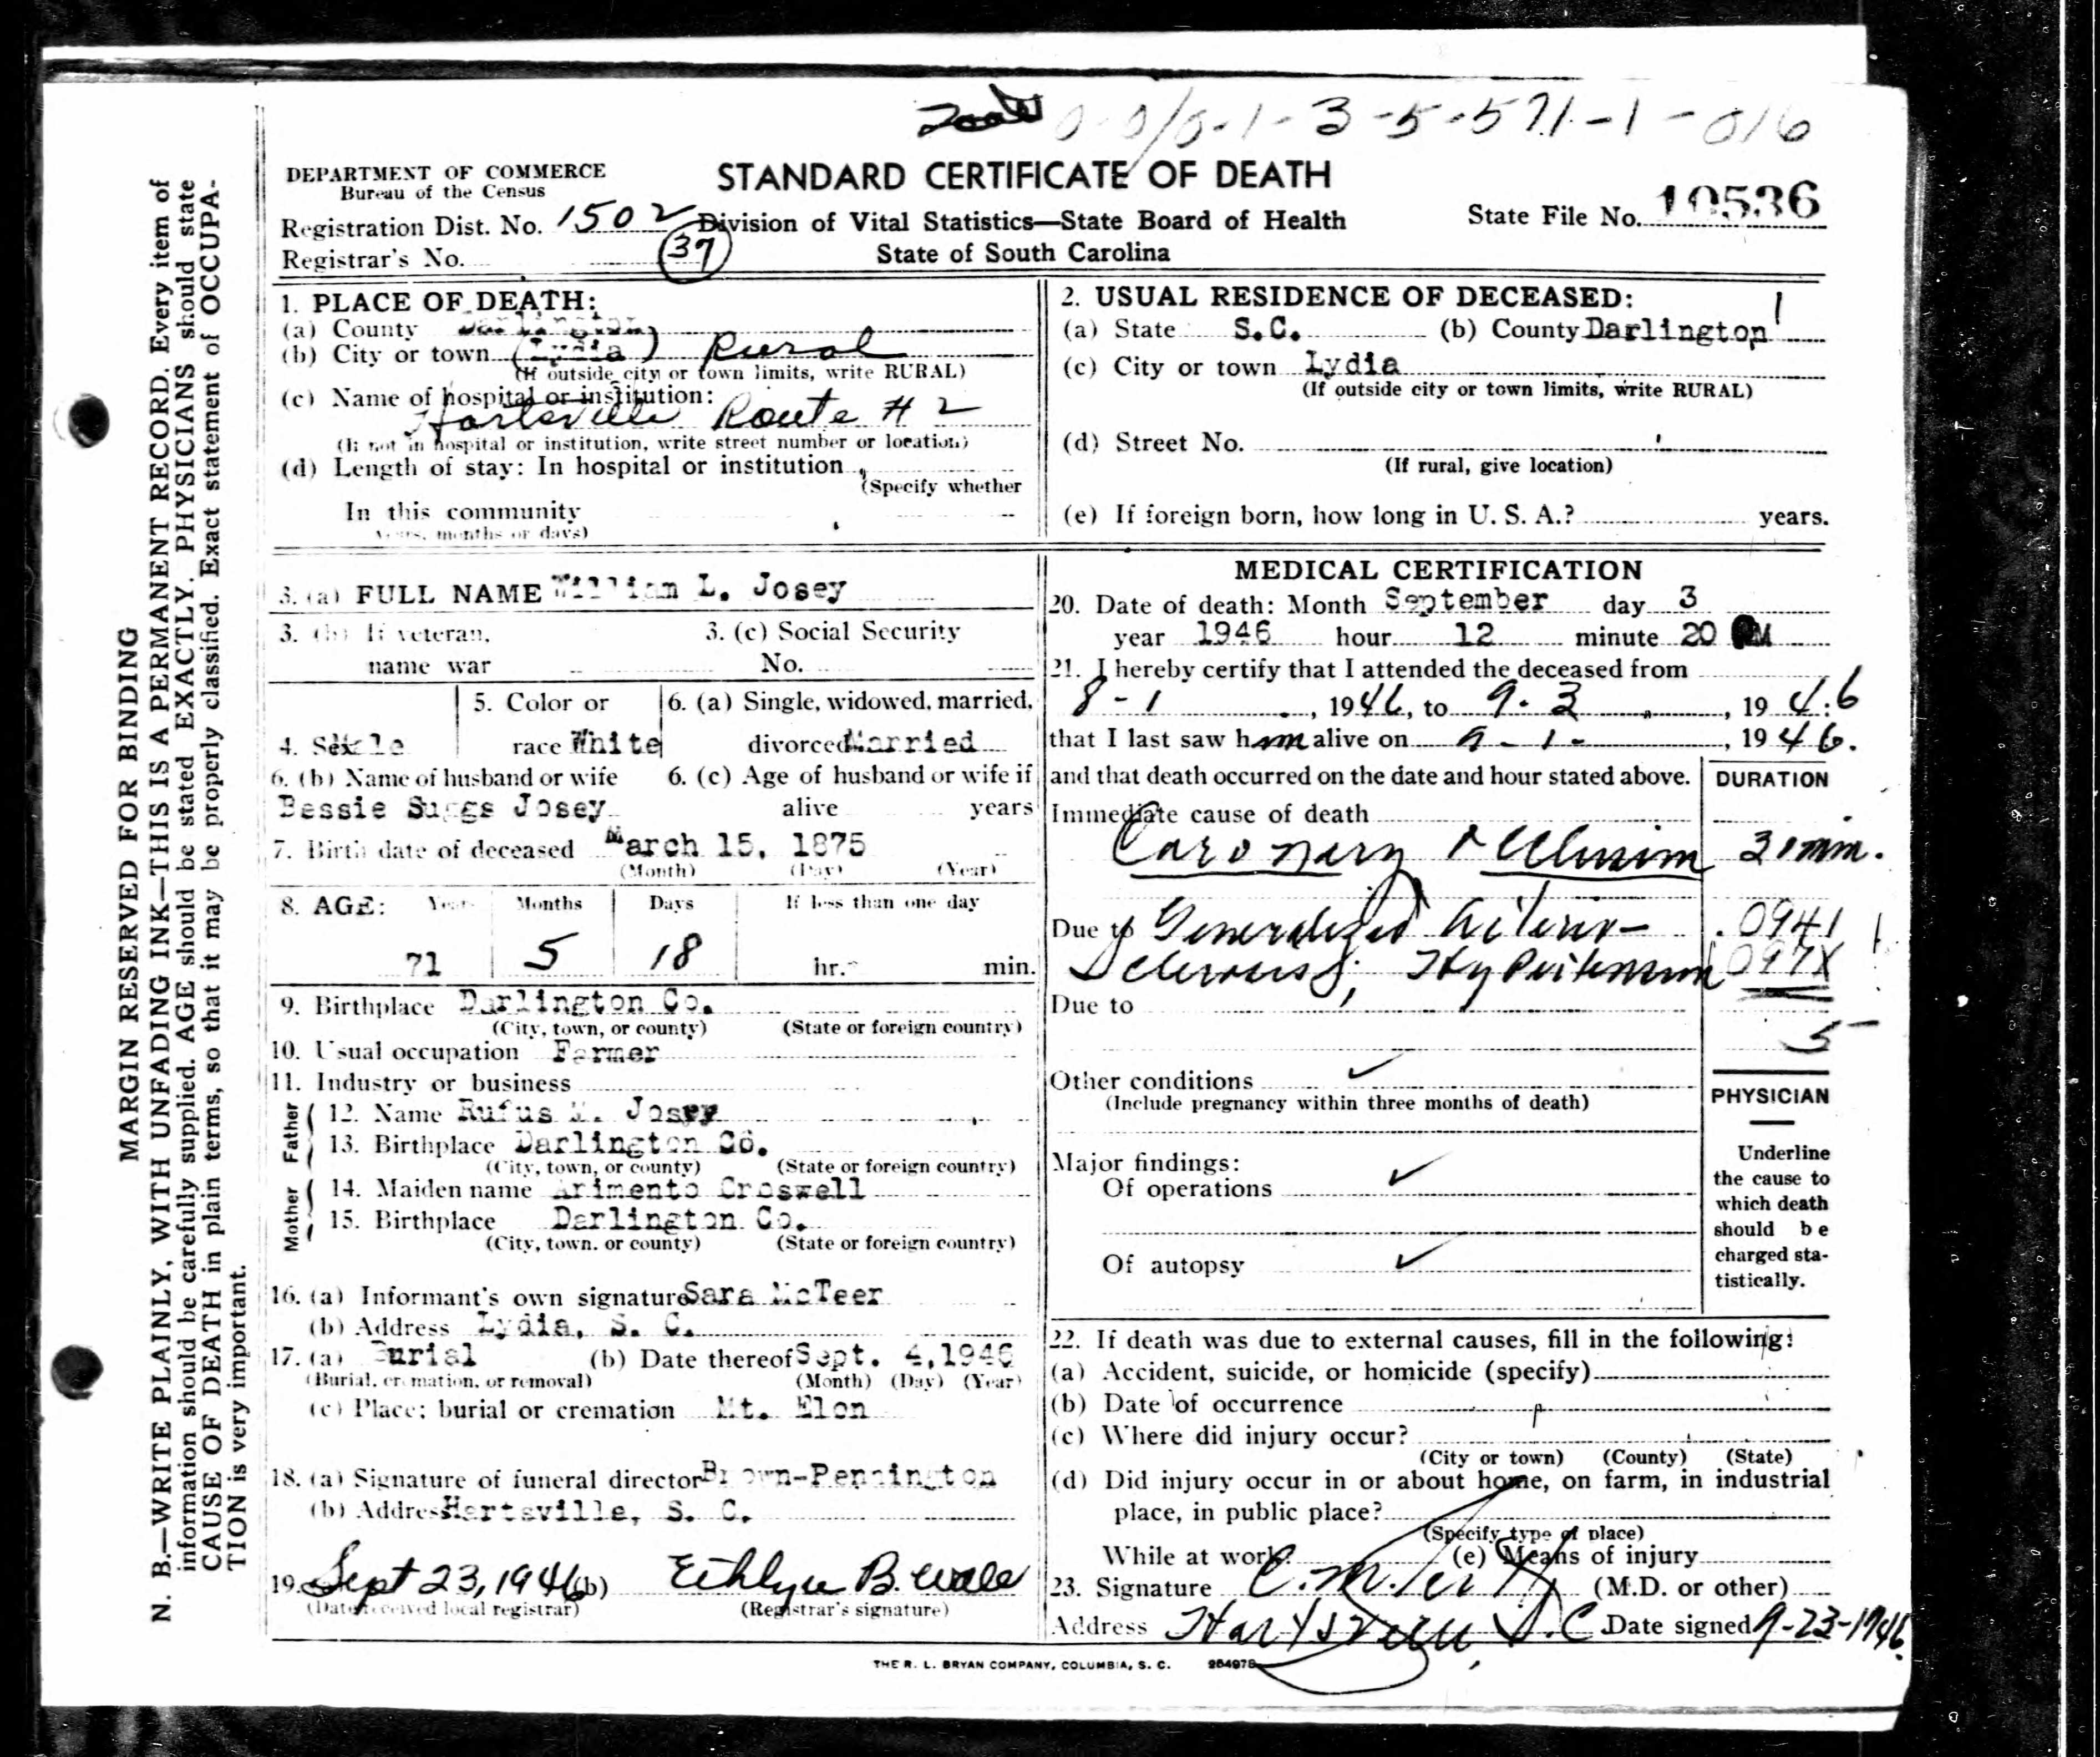 0-0/0-1-3-5-571-1-016
DEPARTMENT OF COMMERCE
Bureau of the Census
STANDARD CERTIFICATE OF DEATH
Registration Dist. No. 1502
Division of Vital Statistics—State Board of Health
State File No. 10536
Registrar's No. 37
State of South Carolina
MARGIN RESERVED FOR BINDING
N. B.—WRITE PLAINLY, WITH UNFADING INK—THIS IS A PERMANENT RECORD. Every item of
information should be carefully supplied. AGE should be stated EXACTLY. PHYSICIANS should state
CAUSE OF DEATH in plain terms, so that it may be properly classified. Exact statement of OCCUPA-
TION is very important.
1. PLACE OF DEATH:
(a) County Darlington
(b) City or town (Lydia) Rural
(If outside city or town limits, write RURAL)
(c) Name of hospital or institution:
Hartsville Route # 2
(If not in hospital or institution, write street number or location)
(d) Length of stay: In hospital or institution
(Specify whether
In this community
years, months or days)
2. USUAL RESIDENCE OF DECEASED:
(a) State S.C. (b) County Darlington
(c) City or town Lydia
(If outside city or town limits, write RURAL)
(d) Street No.
(If rural, give location)
(e) If foreign born, how long in U. S. A.? years.
3. (a) FULL NAME William L. Josey
3. (b) If veteran, 3. (c) Social Security
name war No.
5. Color or 6. (a) Single, widowed, married,
4. Sex Male race White divorced Married
6. (b) Name of husband or wife 6. (c) Age of husband or wife if
Bessie Suggs Josey alive years
7. Birth date of deceased March 15, 1875
(Month) (Day) (Year)
8. AGE: Years Months Days If less than one day
71 5 18 hr. min.
9. Birthplace Darlington Co.
(City, town, or county) (State or foreign country)
10. Usual occupation Farmer
11. Industry or business
Father
12. Name Rufus M. Josey
13. Birthplace Darlington Co.
(City, town, or county) (State or foreign country)
Mother
14. Maiden name Arimento Croswell
15. Birthplace Darlington Co.
(City, town. or county) (State or foreign country)
16. (a) Informant's own signature Sara McTeer
(b) Address Lydia, S. C.
17. (a) Burial (b) Date thereof Sept. 4, 1946
(Burial, cremation, or removal) (Month) (Day) (Year)
(c) Place; burial or cremation Mt. Elon
18. (a) Signature of funeral director Brown-Pennington
(b) Address Hartsville, S. C.
19. Sept 23, 1946 (b) B.
(Date received local registrar) (Registrar's signature)
MEDICAL CERTIFICATION
20. Date of death: Month September day 3
year 1946 hour 12 minute 20 M
21. I hereby certify that I attended the deceased from
8-1, 1946, to 9-3, 1946
that I last saw him alive on 9-1-, 1946.
and that death occurred on the date and hour stated above. DURATION
Immediate cause of death
Coronary Occlusion 30 min.
Due to Generalized Arterio- 0941
Sclerosis; Hypertension 097X
Due to
5
Other conditions ✓
(Include pregnancy within three months of death)
Major findings:
Of operations ✓
Of autopsy ✓
PHYSICIAN
Underline
the cause to
which death
should be
charged sta-
tistically.
22. If death was due to external causes, fill in the following:
(a) Accident, suicide, or homicide (specify)
(b) Date of occurrence
(c) Where did injury occur?
(City or town) (County) (State)
(d) Did injury occur in or about home, on farm, in industrial
place, in public place?
(Specify type of place)
While at work? (e) Means of injury
23. Signature (M.D. or other)
Address Hartsville, S.C. Date signed 9-23-1946
THE R. L. BRYAN COMPANY, COLUMBIA, S. C. 254978